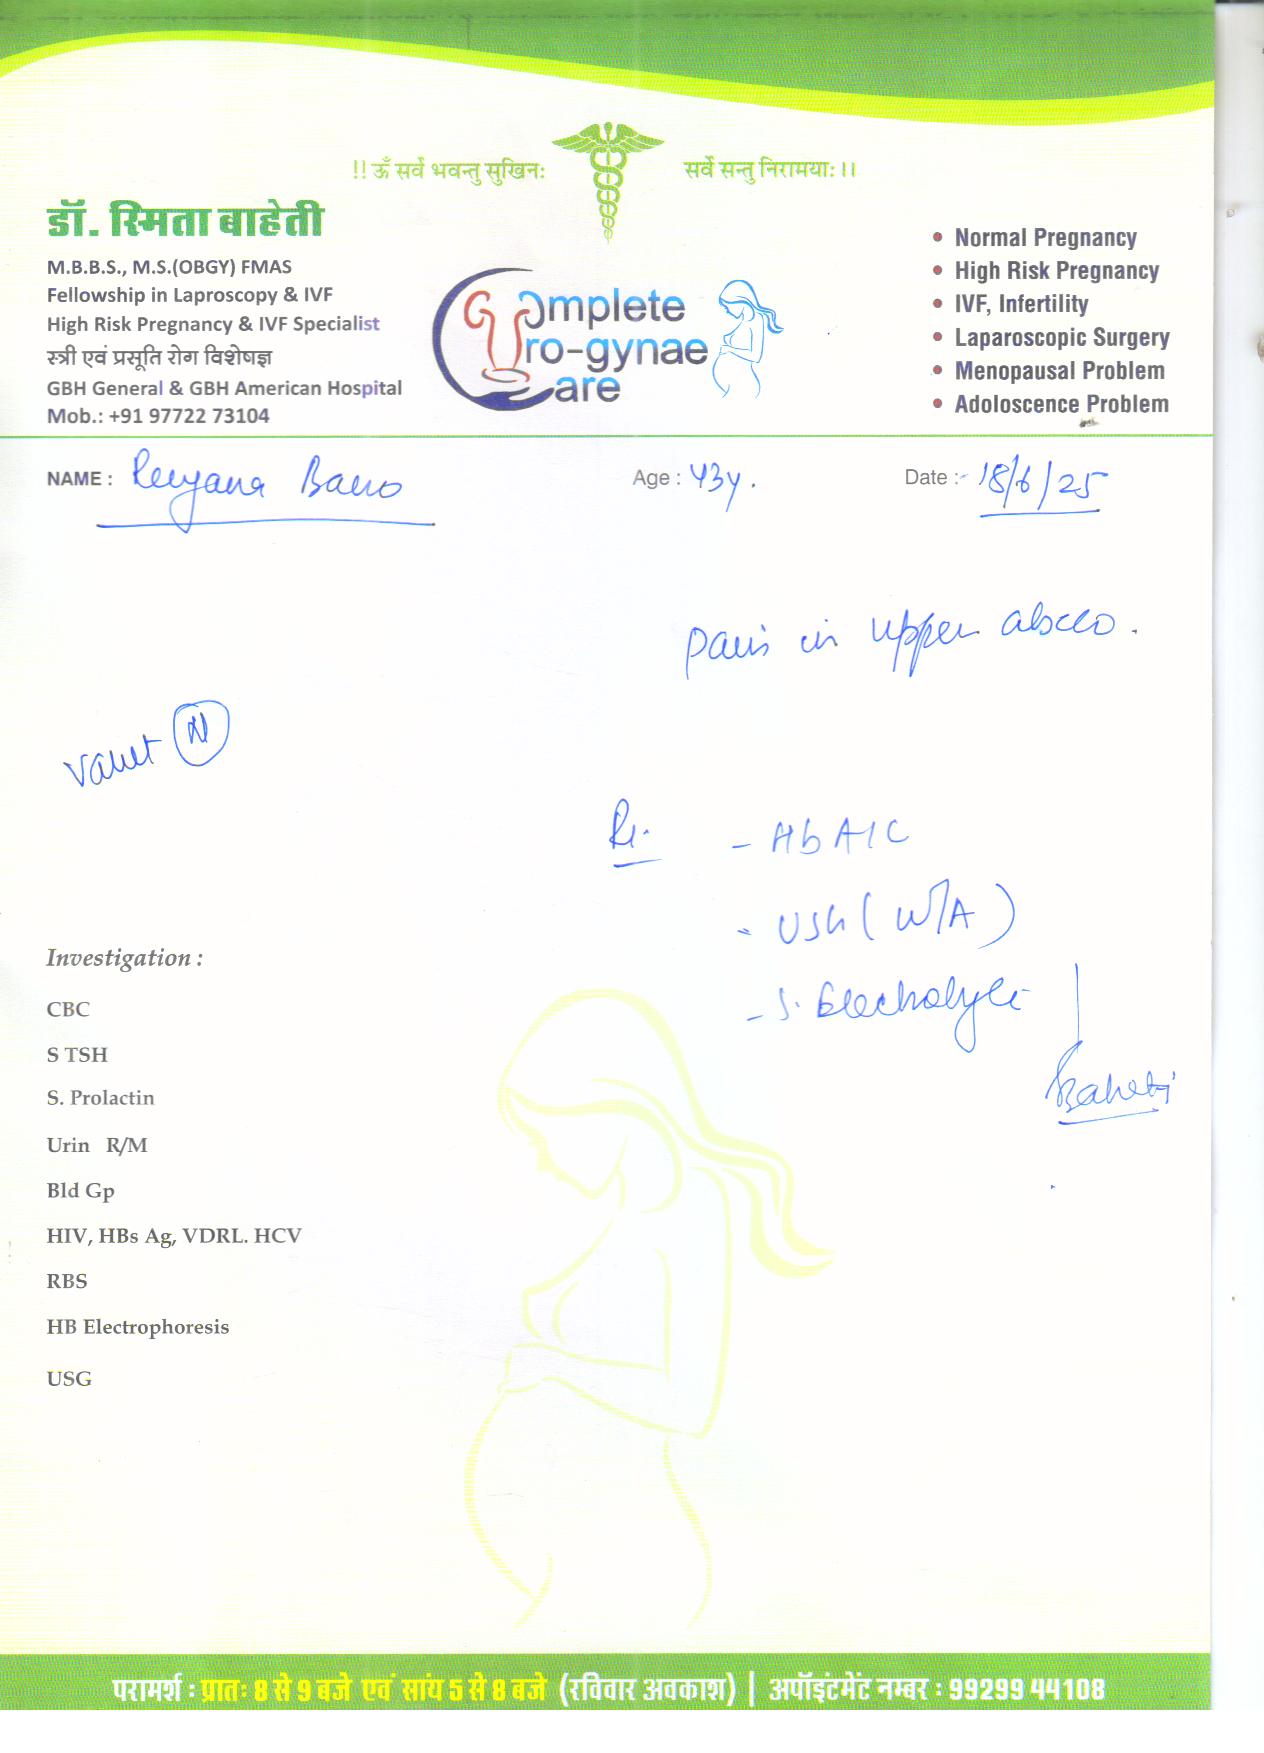 !! ॐ सर्वे भवन्तु सुखिनः सर्वे सन्तु निरामयाः ।।
डॉ. स्मिता बाहेती
M.B.B.S., M.S.(OBGY) FMAS
Fellowship in Laproscopy & IVF
High Risk Pregnancy & IVF Specialist
स्त्री एवं प्रसूति रोग विशेषज्ञ
GBH General & GBH American Hospital
Mob.: +91 97722 73104
Complete
Uro-gynae
Care
• Normal Pregnancy
• High Risk Pregnancy
• IVF, Infertility
• Laparoscopic Surgery
• Menopausal Problem
• Adoloscence Problem
NAME : Bano Age : 43y. Date :- 18/6/25
pain in upper
vault N
Rx. - HbA1C
- USG (W/A)
- S. Electrolyte
Baheti
Investigation :
CBC
S TSH
S. Prolactin
Urin R/M
Bld Gp
HIV, HBs Ag, VDRL. HCV
RBS
HB Electrophoresis
USG
परामर्श : प्रातः 8 से 9 बजे एवं सांय 5 से 8 बजे (रविवार अवकाश) | अपॉइंटमेंट नम्बर : 99299 44108